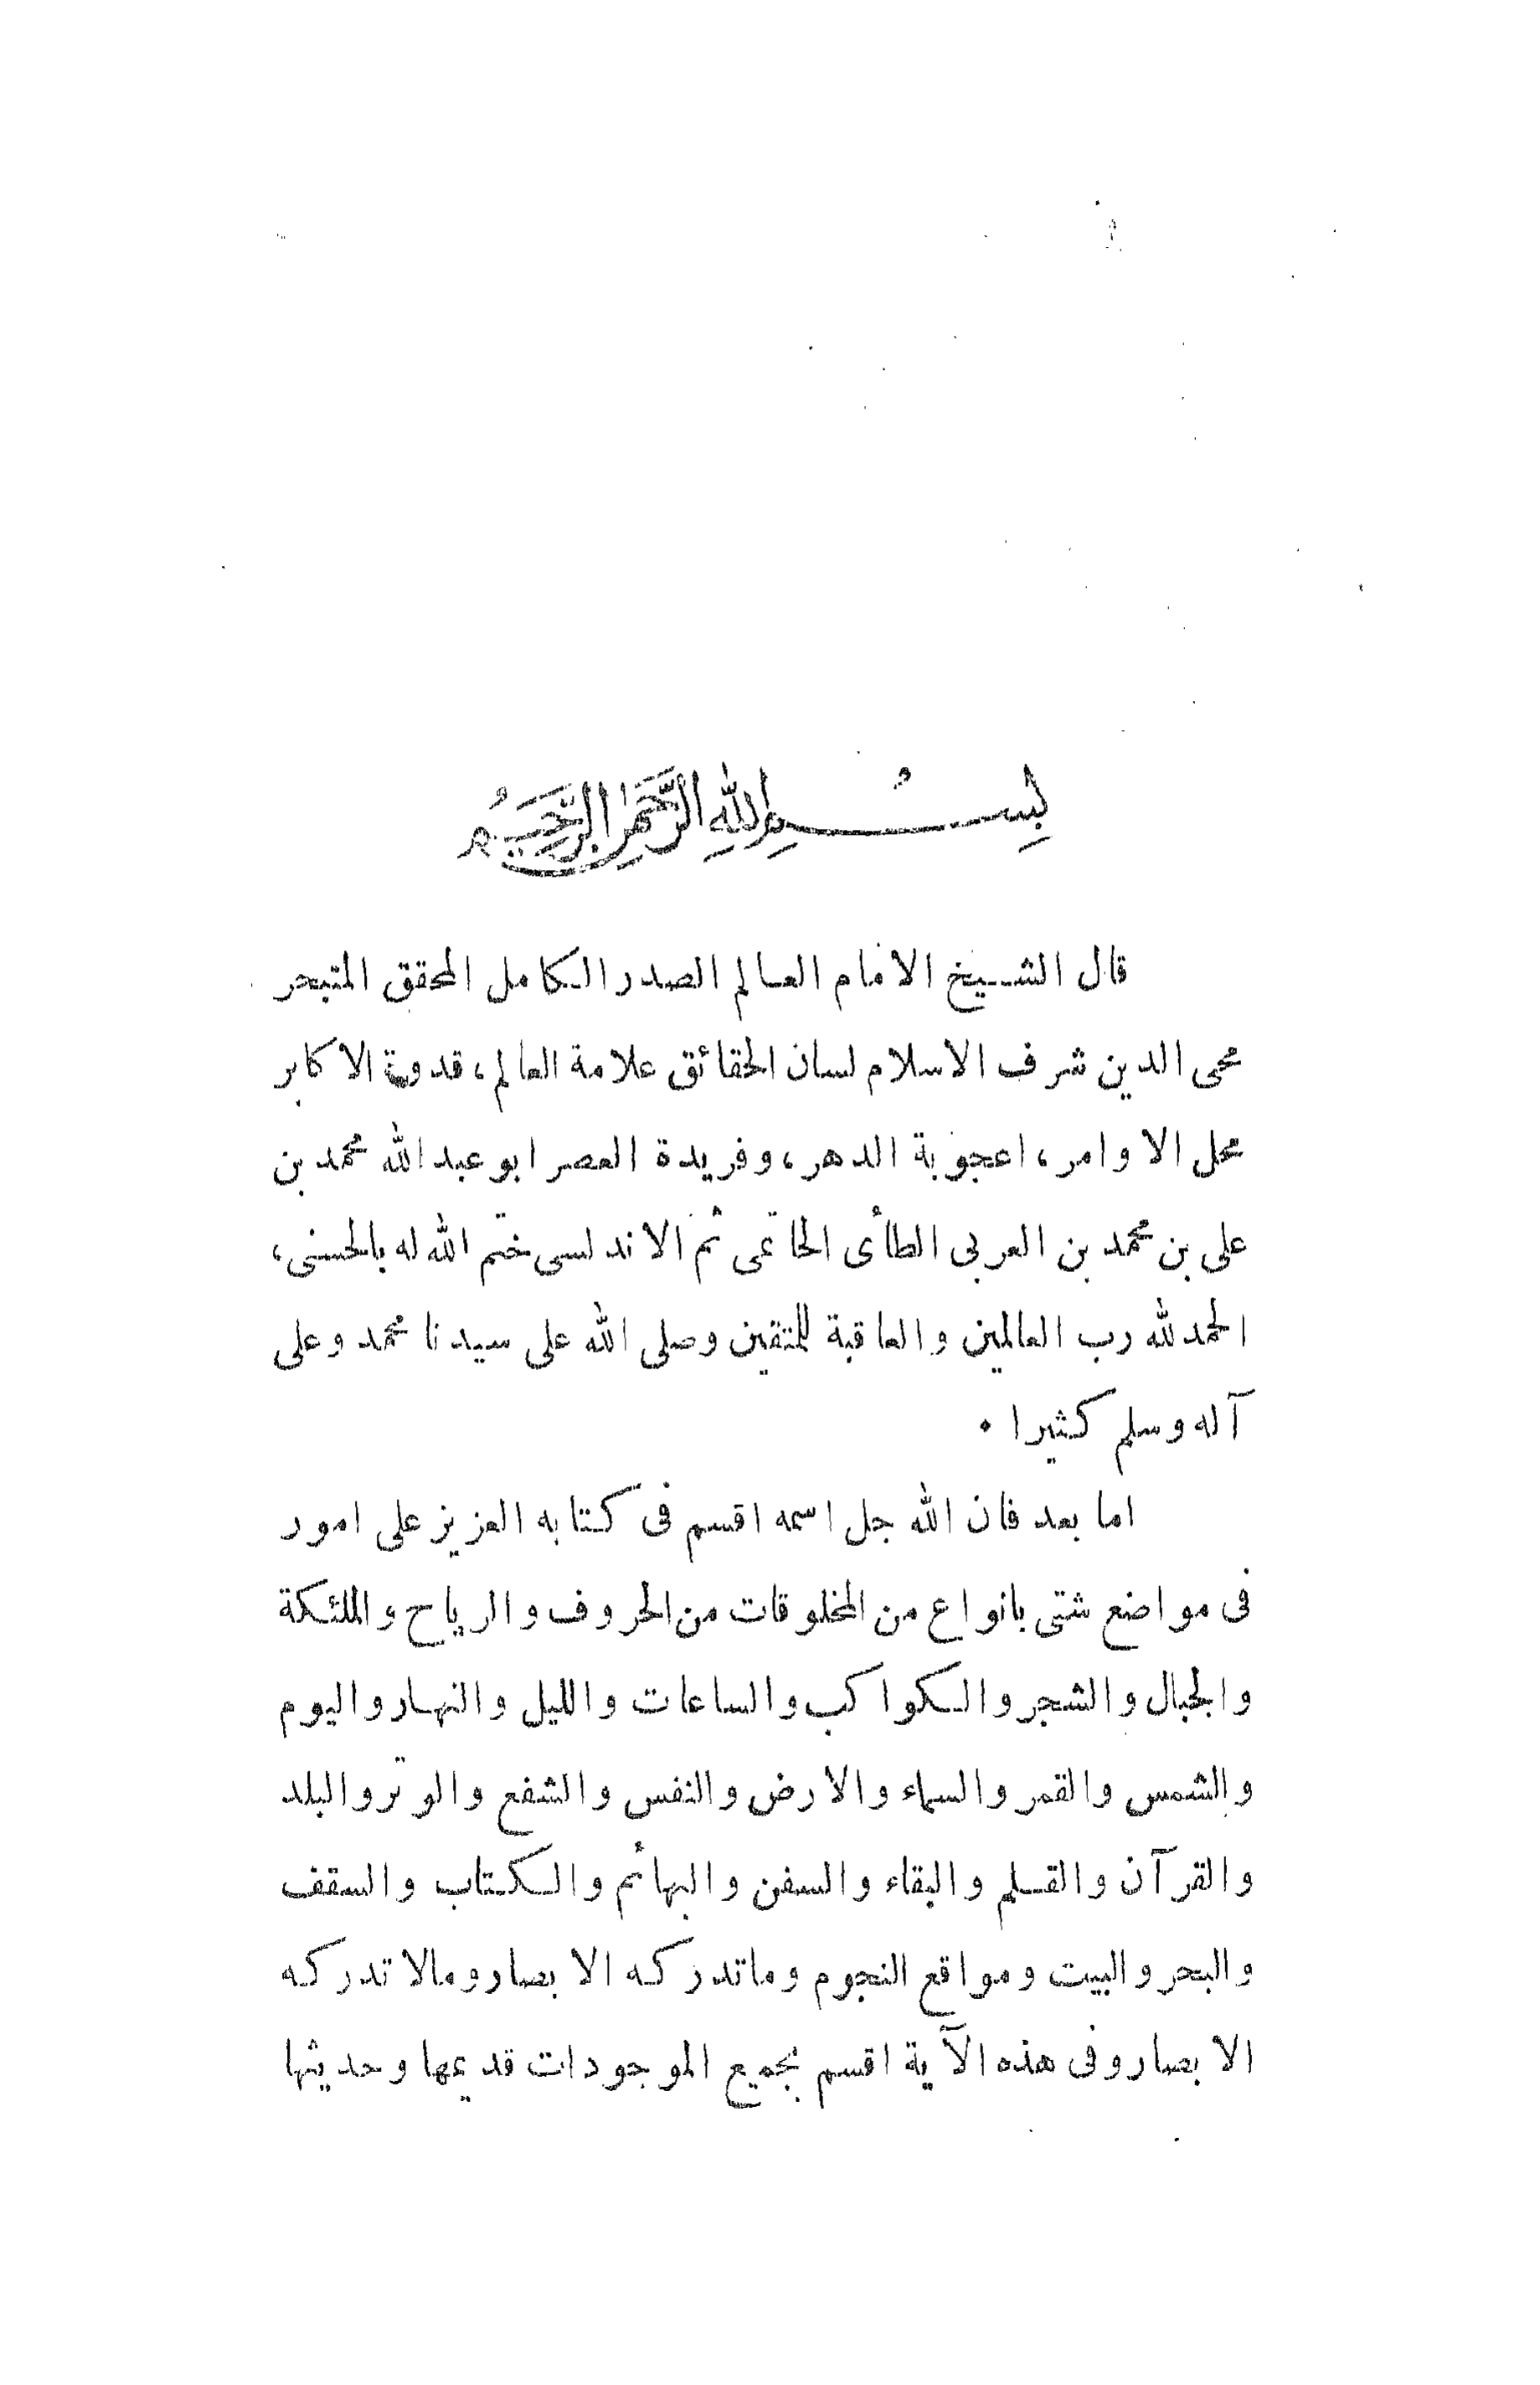 بِسْمِ اللهِ الرَّحْمٰنِ الرَّحِيْمِ
قال الشيخ الامام العالم الصدر الكامل المحقق المتبحر
محى الدين شرف الاسلام لسان الحقائق علامة العالم، قدوة الاكابر
محل الاوامر، اعجوبة الدهر، وفريدة العصر ابو عبد الله محمد بن
على بن محمد بن العربى الطأى الحاتمى ثم الاندلسى ختم الله له بالحسنى،
الحمد لله رب العالمين والعاقبة للمتقين وصلى الله على سيدنا محمد وعلى
آله وسلم كثيرا .
اما بعد فان الله جل اسمه اقسم فى كتابه العزيز على امور
فى مواضع شتى بانواع من المخلوقات من الحروف والرياح والملئكة
والجبال والشجر والكواكب والساعات والليل والنهار واليوم
والشمس والقمر والسماء والارض والنفس والشفع والوتر والبلد
والقرآن والقلم والبقاء والسفن والبهائم والكتاب والسقف
والبحر والبيت ومواقع النجوم وما تدركه الابصار ومالا تدركه
الابصار وفى هذه الآية اقسم بجميع الموجودات قديمها وحديثها